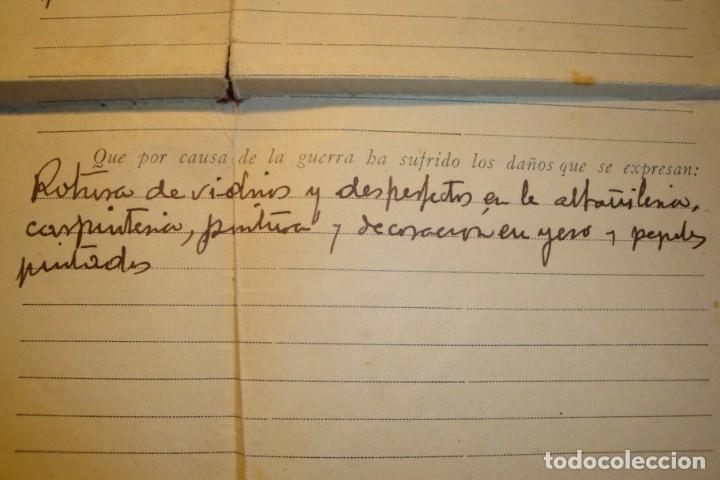 Que por causa de la guerra ha sufrido los daños que se expresan:
Rotura de vidrios y desperfectos en la albañileria,
carpinteria, pintura y decoración en yeso y papeles
pintados
todocoleccion